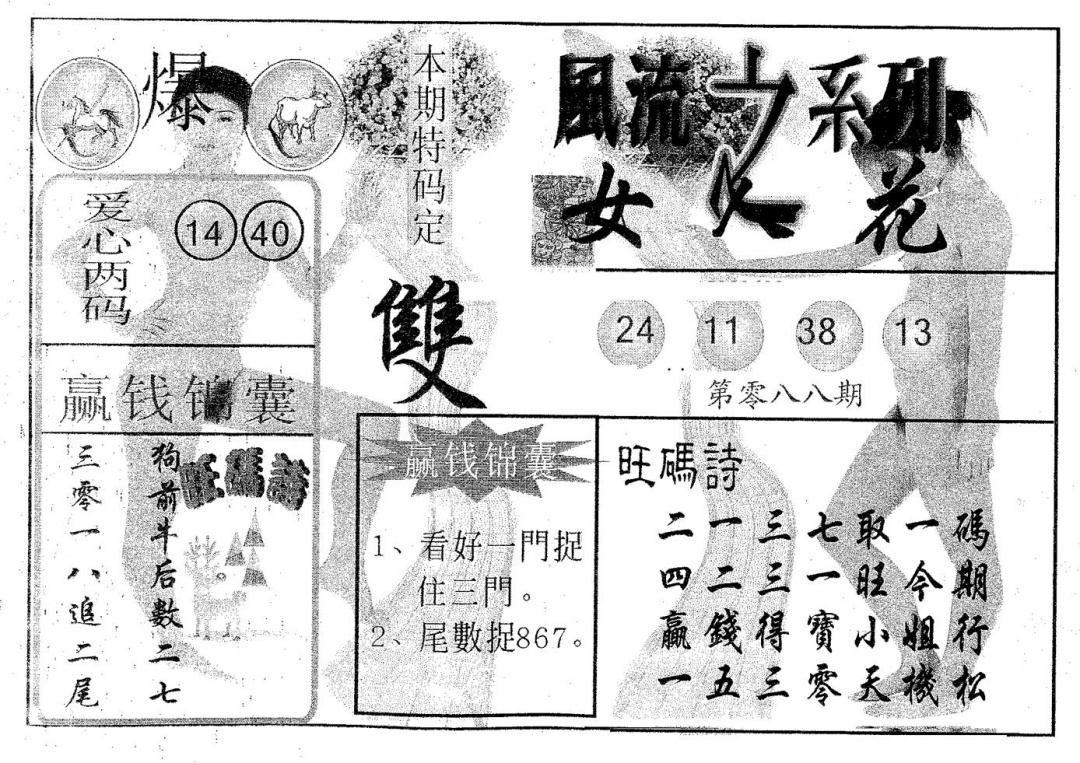 爆
爱心两码
14 40
赢钱锦囊
旺碼詩
狗前牛后數二七
三零一八追二尾
本期特码定
雙
赢钱锦囊
1、看好一門捉
住三門。
2、尾數捉867。
風流之系列
女人花
24 11 38 13
第零八八期
旺碼詩
二一三七取一碼
四二三一旺今期
贏錢得寶小姐行
一五三零天機松